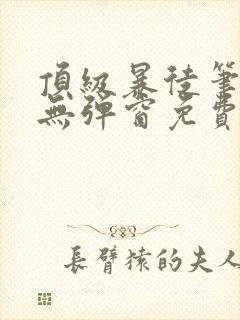 頂級暴徒筆
無彈窗免費
長臂猿的夫人